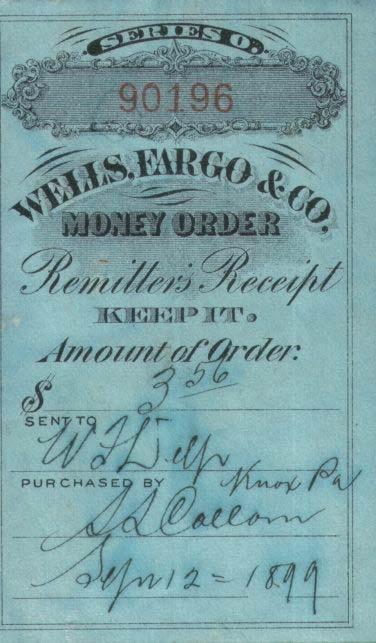 SERIES O.
90196
WELLS, FARGO & CO.
MONEY ORDER
Remitter's Receipt
KEEP IT.
Amount of Order.
$ 3 56
SENT TO
W
PURCHASED BY Knox Pa
S S Collom
12 = 1899